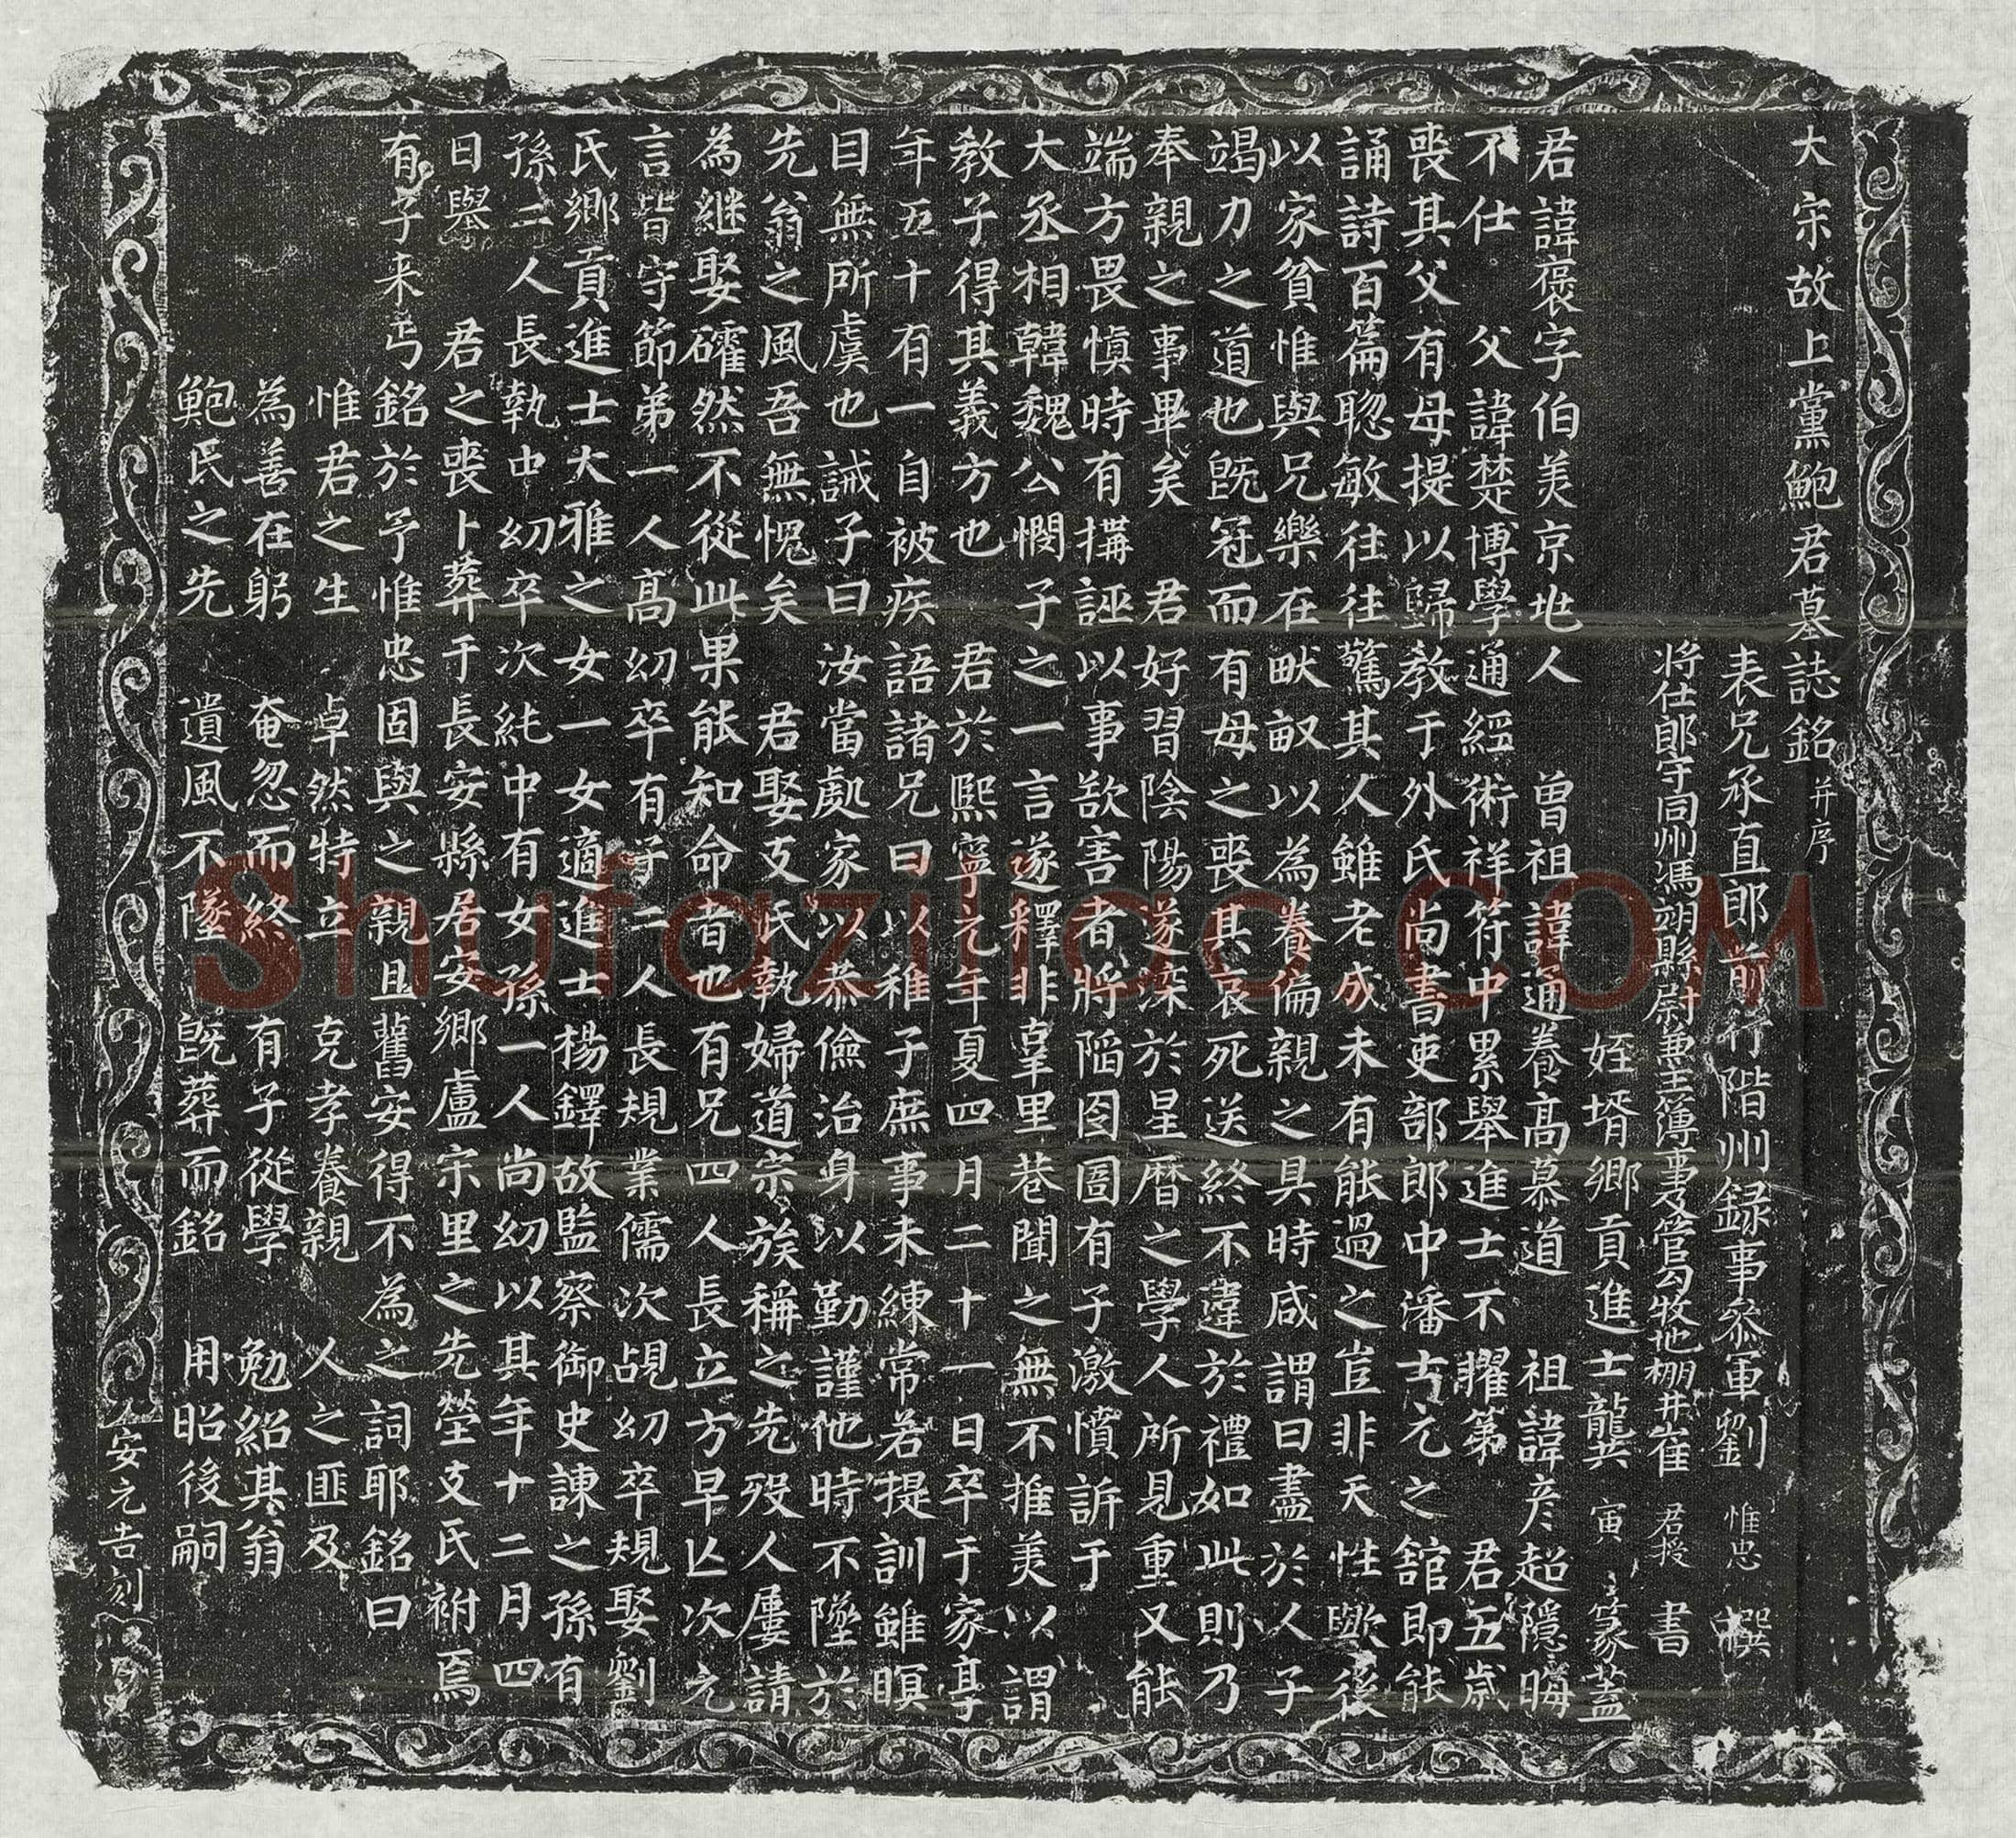 大宋故上黨鮑君墓誌銘并序
表兄承直郎前行階州録事叅軍劉惟忠撰
将仕郎守同州馮翊縣尉兼主簿事及管勾牧地棚井崔君授書
姪壻鄉貢進士龔寅篆蓋
君諱褒字伯羙京地人曾祖諱通養髙慕道祖諱彦超隱晦
不仕父諱楚博學通經術祥符中累舉進士不耀第君五歳
喪其父有母提以歸教于外氏尚書吏部郎中潘古元之舘即能
誦詩百篇聦敏往往驚其人雖老成未有能過之豈非天性歟後
以家貧惟與兄樂在畎畝以為養偏親之具時咸謂曰盡於人子
竭力之道也旣冠而有母之喪其哀死送終不違於禮如此則乃
奉親之事畢矣君好習陰陽遂深於星曆之學人所見重又能
端方畏慎時有搆誣以事欲害者將陷囹圄有子激憤訴于
大丞相韓魏公憫子之一言遂釋非辜里巷聞之無不推羙以謂
教子得其義方也君於熙寧元年夏四月二十一日卒于家享
年五十有一自被疾語諸兄曰以稚子庶事未練常若提訓雖瞑
目無所虞也誡子曰汝當處家以恭儉治身以勤謹他時不墜於
先翁之風吾無愧矣君娶支氏執婦道宗族稱之先歿人屢請
為継娶確然不從此果能知命者也有兄四人長立方早亡次元
言皆守節弟一人髙幼卒有子二人長規業儒次覘幼卒規娶劉
氏鄉貢進士大雅之女一女適進士楊鐸故監察御史諫之孫有
孫二人長執中幼卒次純中有女孫一人尚幼以其年十二月四
日舉君之喪卜葬于長安縣居安鄉盧宗里之先塋支氏祔焉
有子来丐銘於予惟忠固與之親且舊安得不為之詞耶銘曰
惟君之生卓然特立克孝養親人之匪及
為善在躬奄忽而終有子從學勉紹其翁
鮑氏之先遺風不墜旣葬而銘用昭後嗣
安元吉刻
Shufaziliao.COM